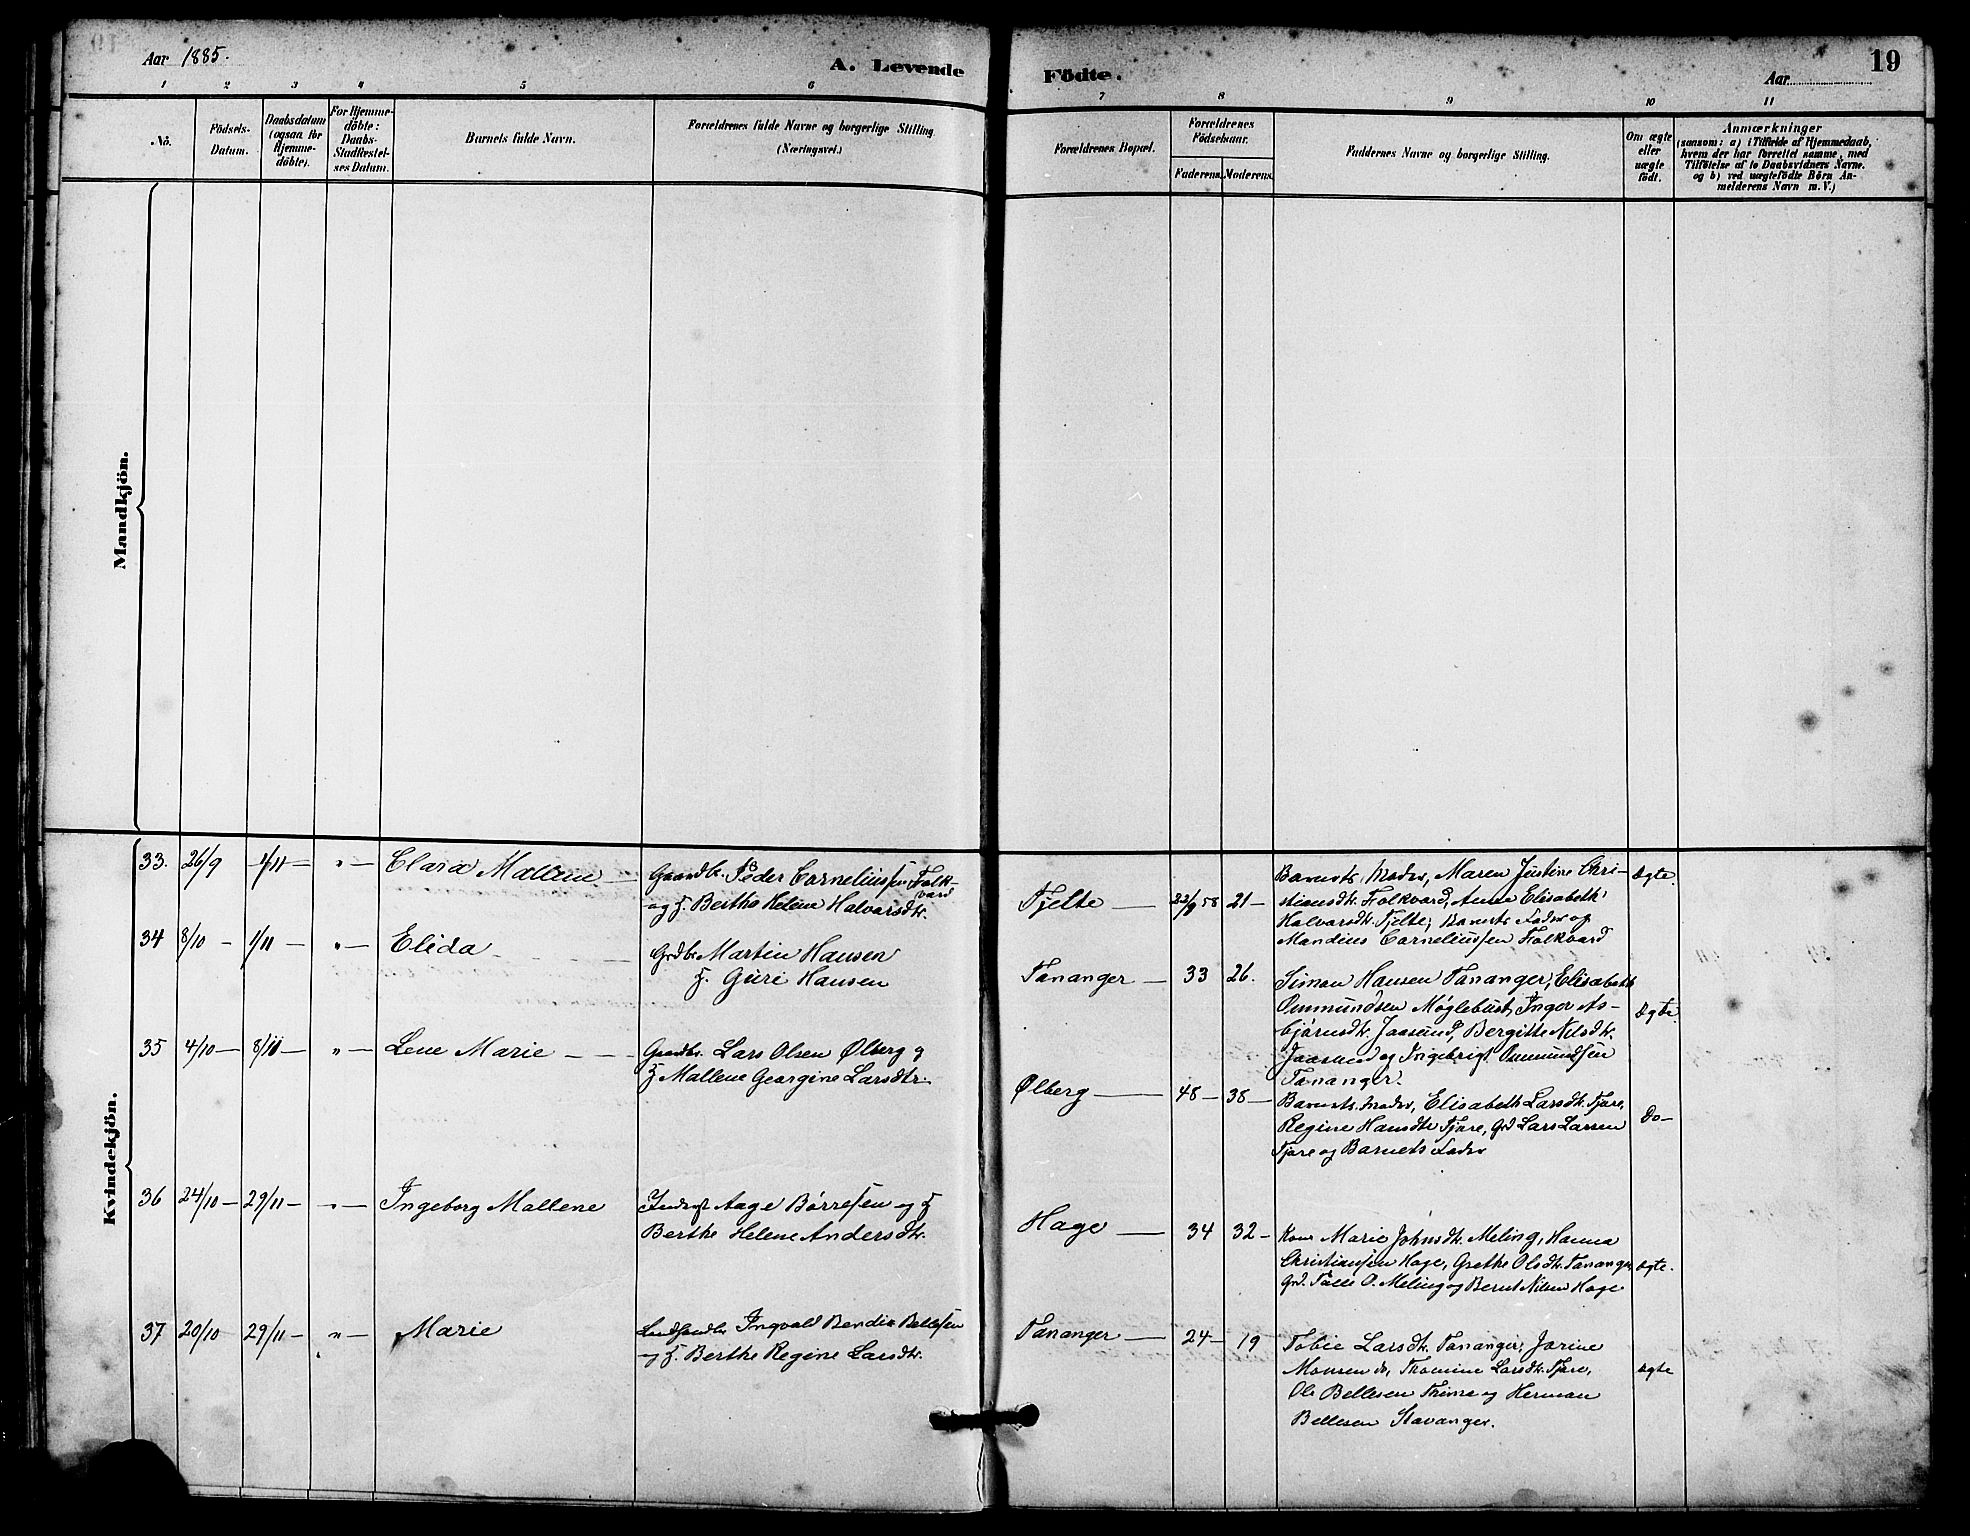 Aar 1885.
A. Levende
Födte.
Aar
19
1
2
3
4
5
6
7
8
9
10
11
No.
Födsels-
Datum.
Daabsdatum
(ogsaa for
Hjemme-
döbte).
For Hjemme-
döbte:
Daabs-
Stadfæstel-
ses Datum.
Barnets fulde Navn.
Forældrenes fulde Navne og borgerlige Stilling.
(Næringsvei.)
Forældrenes Bopæl.
Forældrenes
Födselsaar.
Faderens.
Moderens.
Faddernes Navne og borgerlige Stilling.
Om ægte
eller
uægte
födt.
Anmærkninger
(saasom: a) i Tilfælde af Hjemmedaab,
hvem der har forrettet samme, med
Tilföielse af to Daabsvidners Navne.
og b) ved uægtefödte Börn An-
melderens Navn m. V.)
Mandkjön.
Kvindekjön.
33. 26/9 1/11 " Clara Mallene
Gaardbr. Peder Corneliussen Folk-
vard
og H. Berthe Helene Halvarsdtr.
Tjelte 22/8 58 21
Barnets Moder, Maren Justine Chri-
stiansdtr. Folkvard, Anne Elisabeth
Halvarsdtr. Tjelte, Barnets Fader og
Mandius Corneliussen Folkvard
ægte.
34 8/10 1/11 " Elida
Grdbr. Martin Hansen
H. Guri Hansen
Tananger 33 26.
Simon Hansen Tananger, Elisabeth
Ommundsen Møglebust, Inger As-
bjørnsdtr. Jaasund, Bergitte Nilsdtr.
Jaasund og Ingebrigt Ommundsen
Tananger.
ægte.
35 4/10 8/11 " Lene Marie
Gaardbr. Lars Olsen Ølberg og
H. Mallene Georgine Larsdtr.
Ølberg 48 38
Barnets Moder, Elisabeth Larsdtr. Tjore,
Regine Hansdtr Tjore, Grd Lars Larsen
Tjore og Barnets Fader
Do
36 24/10 29/11 " Ingeborg Mallene
Aage Børresen og H
Berthe Helene Andersdtr.
Hage 34 32
Kone Marie Johnsdtr. Meling, Hanna
Christiansen Hage, Grethe Olsdtr. Tananger,
Grd. Talle O. Meling og Bernt Nilsen Hage
ægte.
37 20/10 29/11 " Marie
Landhandler Ingvald Bendix Bellesen
og H. Berthe Regine Larsdtr.
Tananger 24 19
Tobie Larsdtr. Tananger, Jorine
Monsen do, Thomine Larsdtr. Tjore,
Ole Bellesen Thime og Herman
Bellesen Stavanger.
ægte